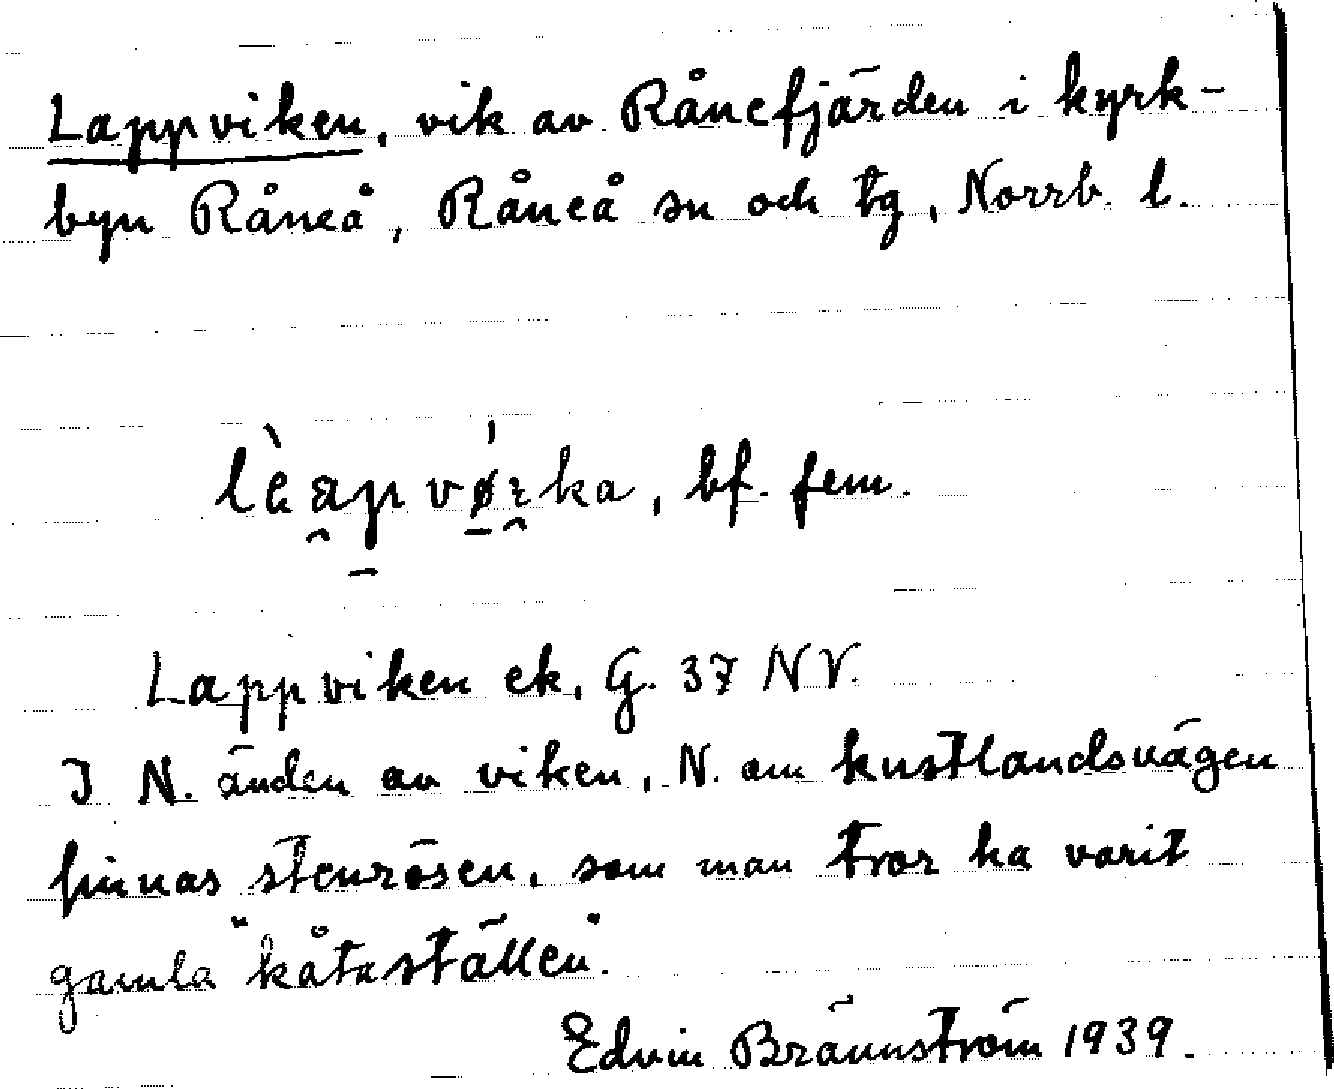 Lappviken, vik av Rånefjärden i kyrk-
byn Råneå, Råneå sn och tg, Norrb. l.
bf. fem.
Lappviken ek. G. 37 NV.
I N. änden av viken, N. om kustlandsvägen
finnas stenrösen, som man tror ha varit
gamla "kåtaställen".
Edvin Brännström 1939.